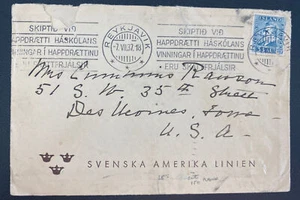 SKIPTIÐ VIÐ
HAPPDRÆTTI HÁSKÓLANS
VINNINGAR Í HAPPDRÆTTINU
ERU SKATTFRJÁLSIR
REYKJAVIK
-7.VII.37.18
SKIPTIÐ VIÐ
HAPPDRÆTTI HÁSKÓLANS
VINNINGAR HAPPDRÆTTINU
ERU
ISLAND
Mrs Rawson
51 S.W. 35th Street
Des Moines, Iowa
U.S.A.
SVENSKA AMERIKA LINIEN